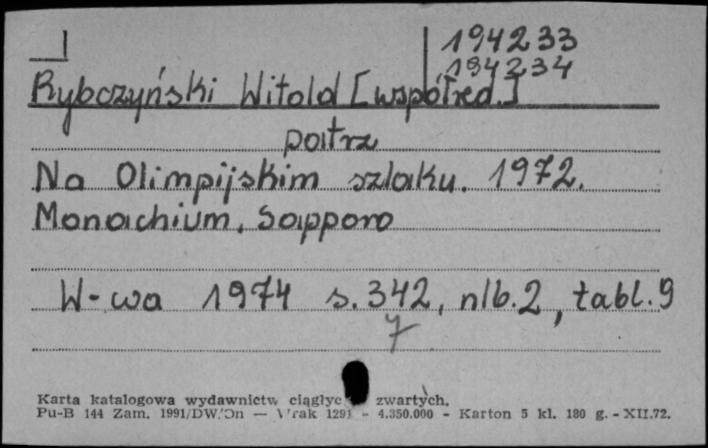 194233
194234
Rybczyński Witold [współred.]
patrz
Na Olimpijskim szlaku. 1972.
Monachium, Sapporo
W-wa 1974 s. 342, nlb. 2, tabl. 9
7
Karta katalogowa wydawnictw zwartych.
Pu-B 144 Zam. 1991/DW. — 4.350.000 - Karton 5 kl. 180 g. - XII.72.